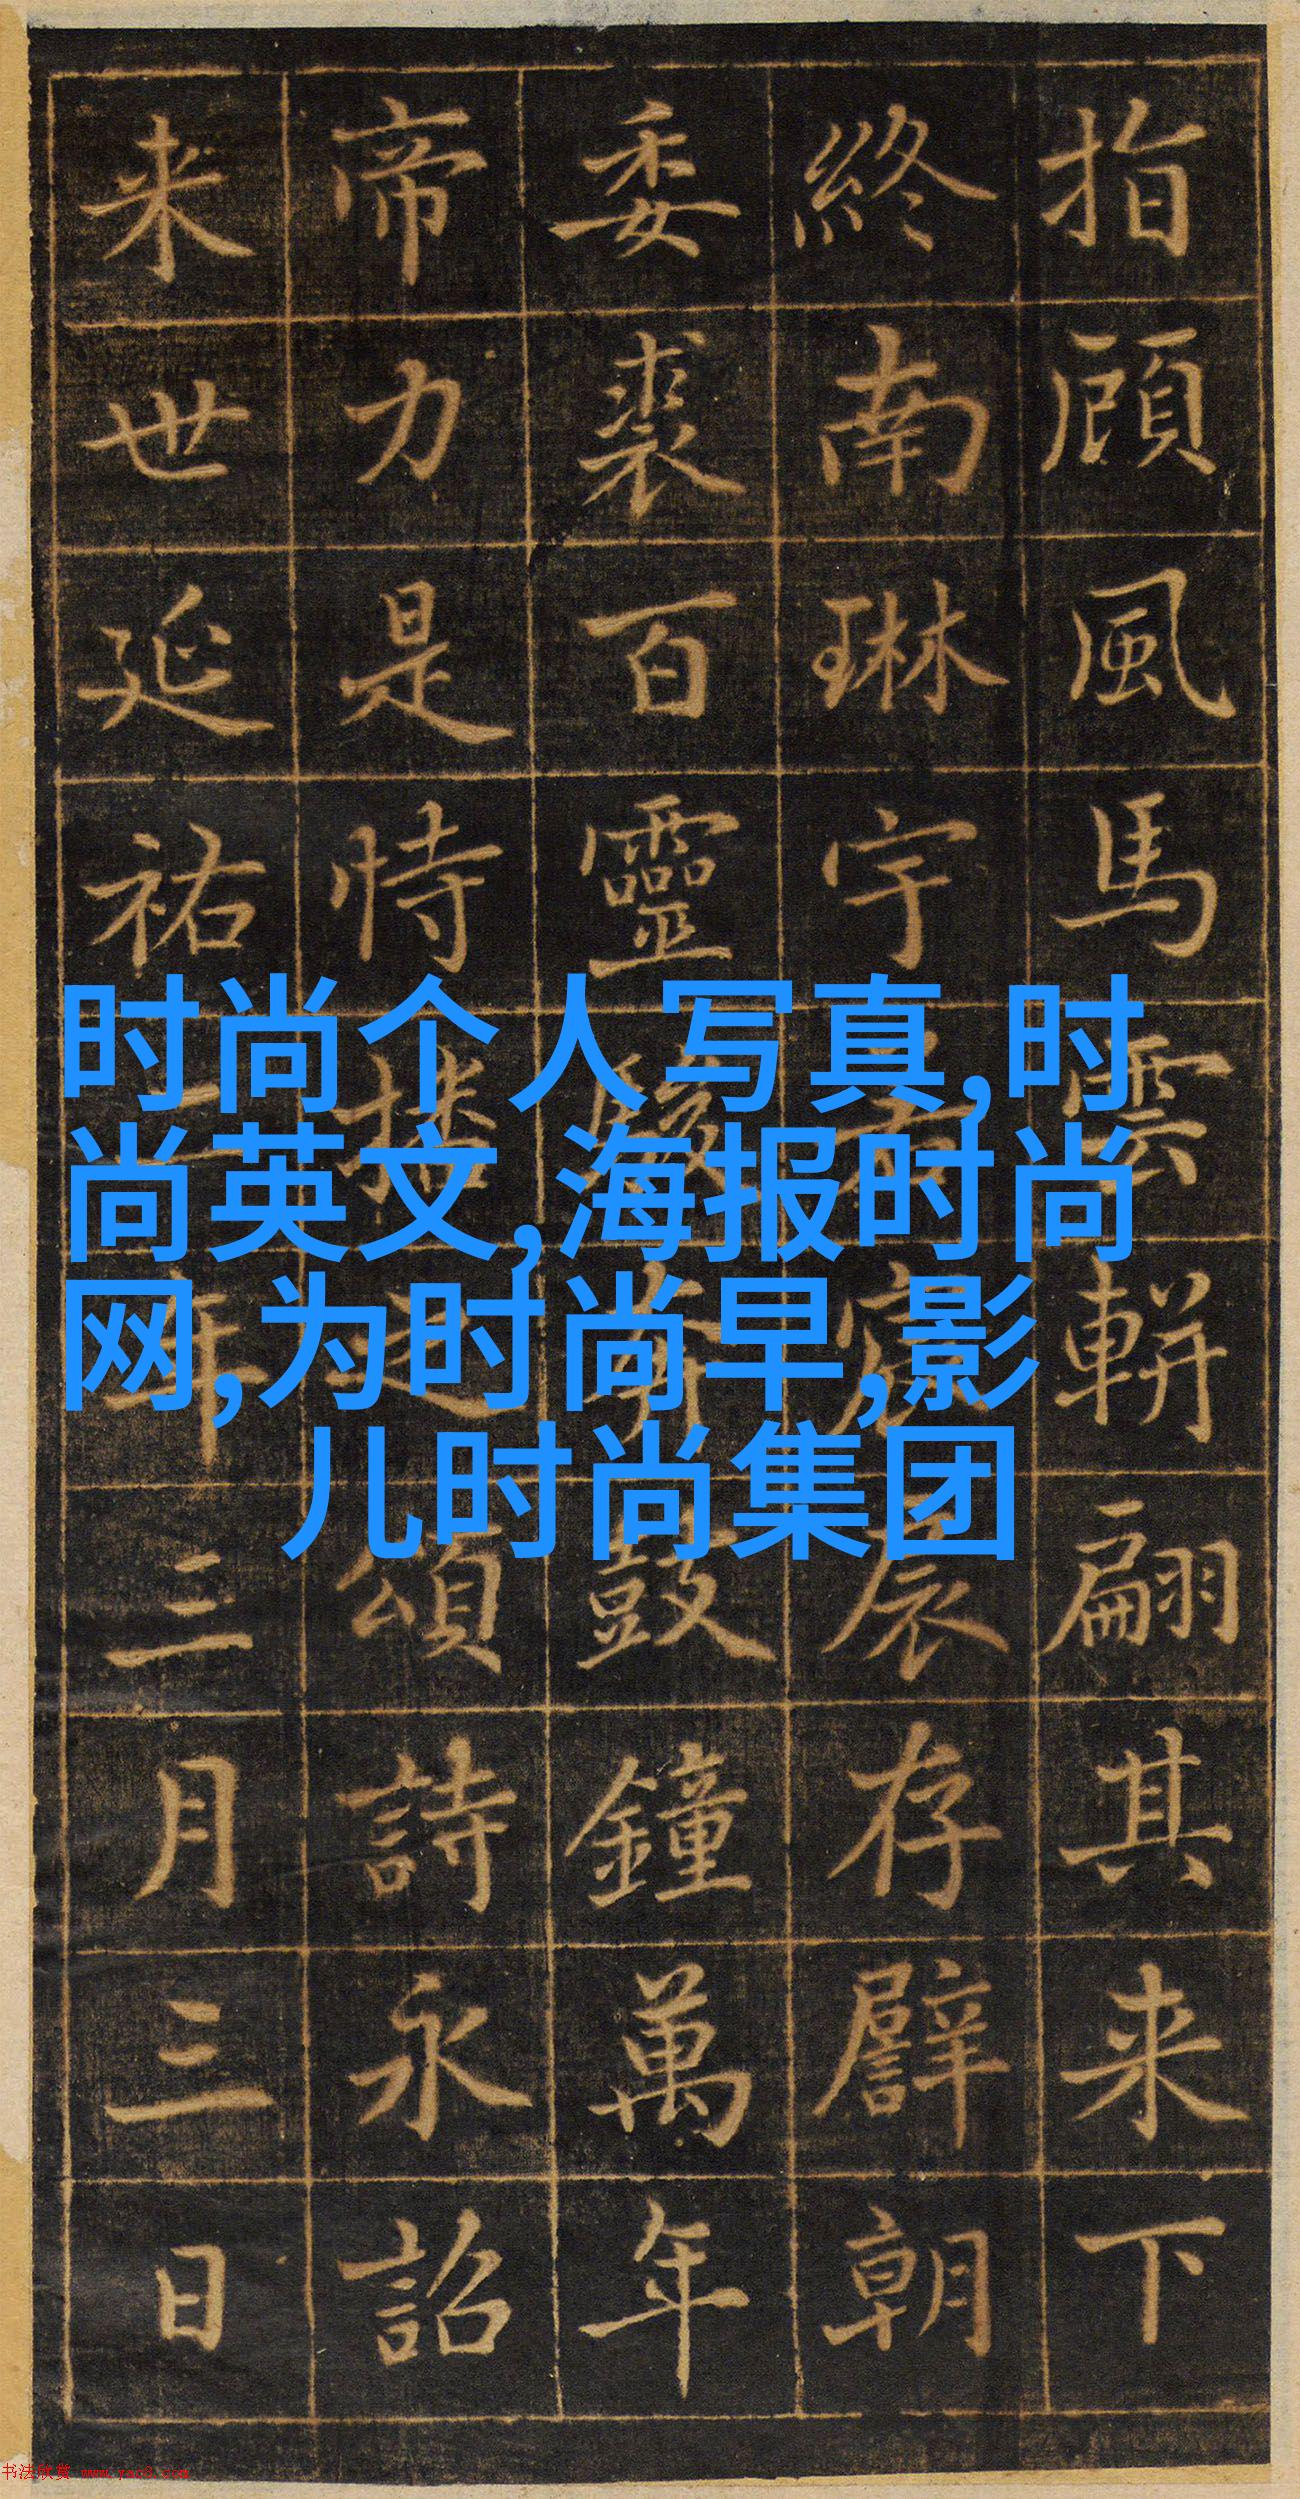 指顧風馬雲輧翩其来下
終南琳宇宸扆存譬朝
委裘百靈鼓鐘萬年
帝力是恃播頌詩永詔
来世延祐年三月三日
时尚个人写真,时
尚英文,海报时尚
网,为时尚早,影
儿时尚集团
书法欣赏 www.yac8.com